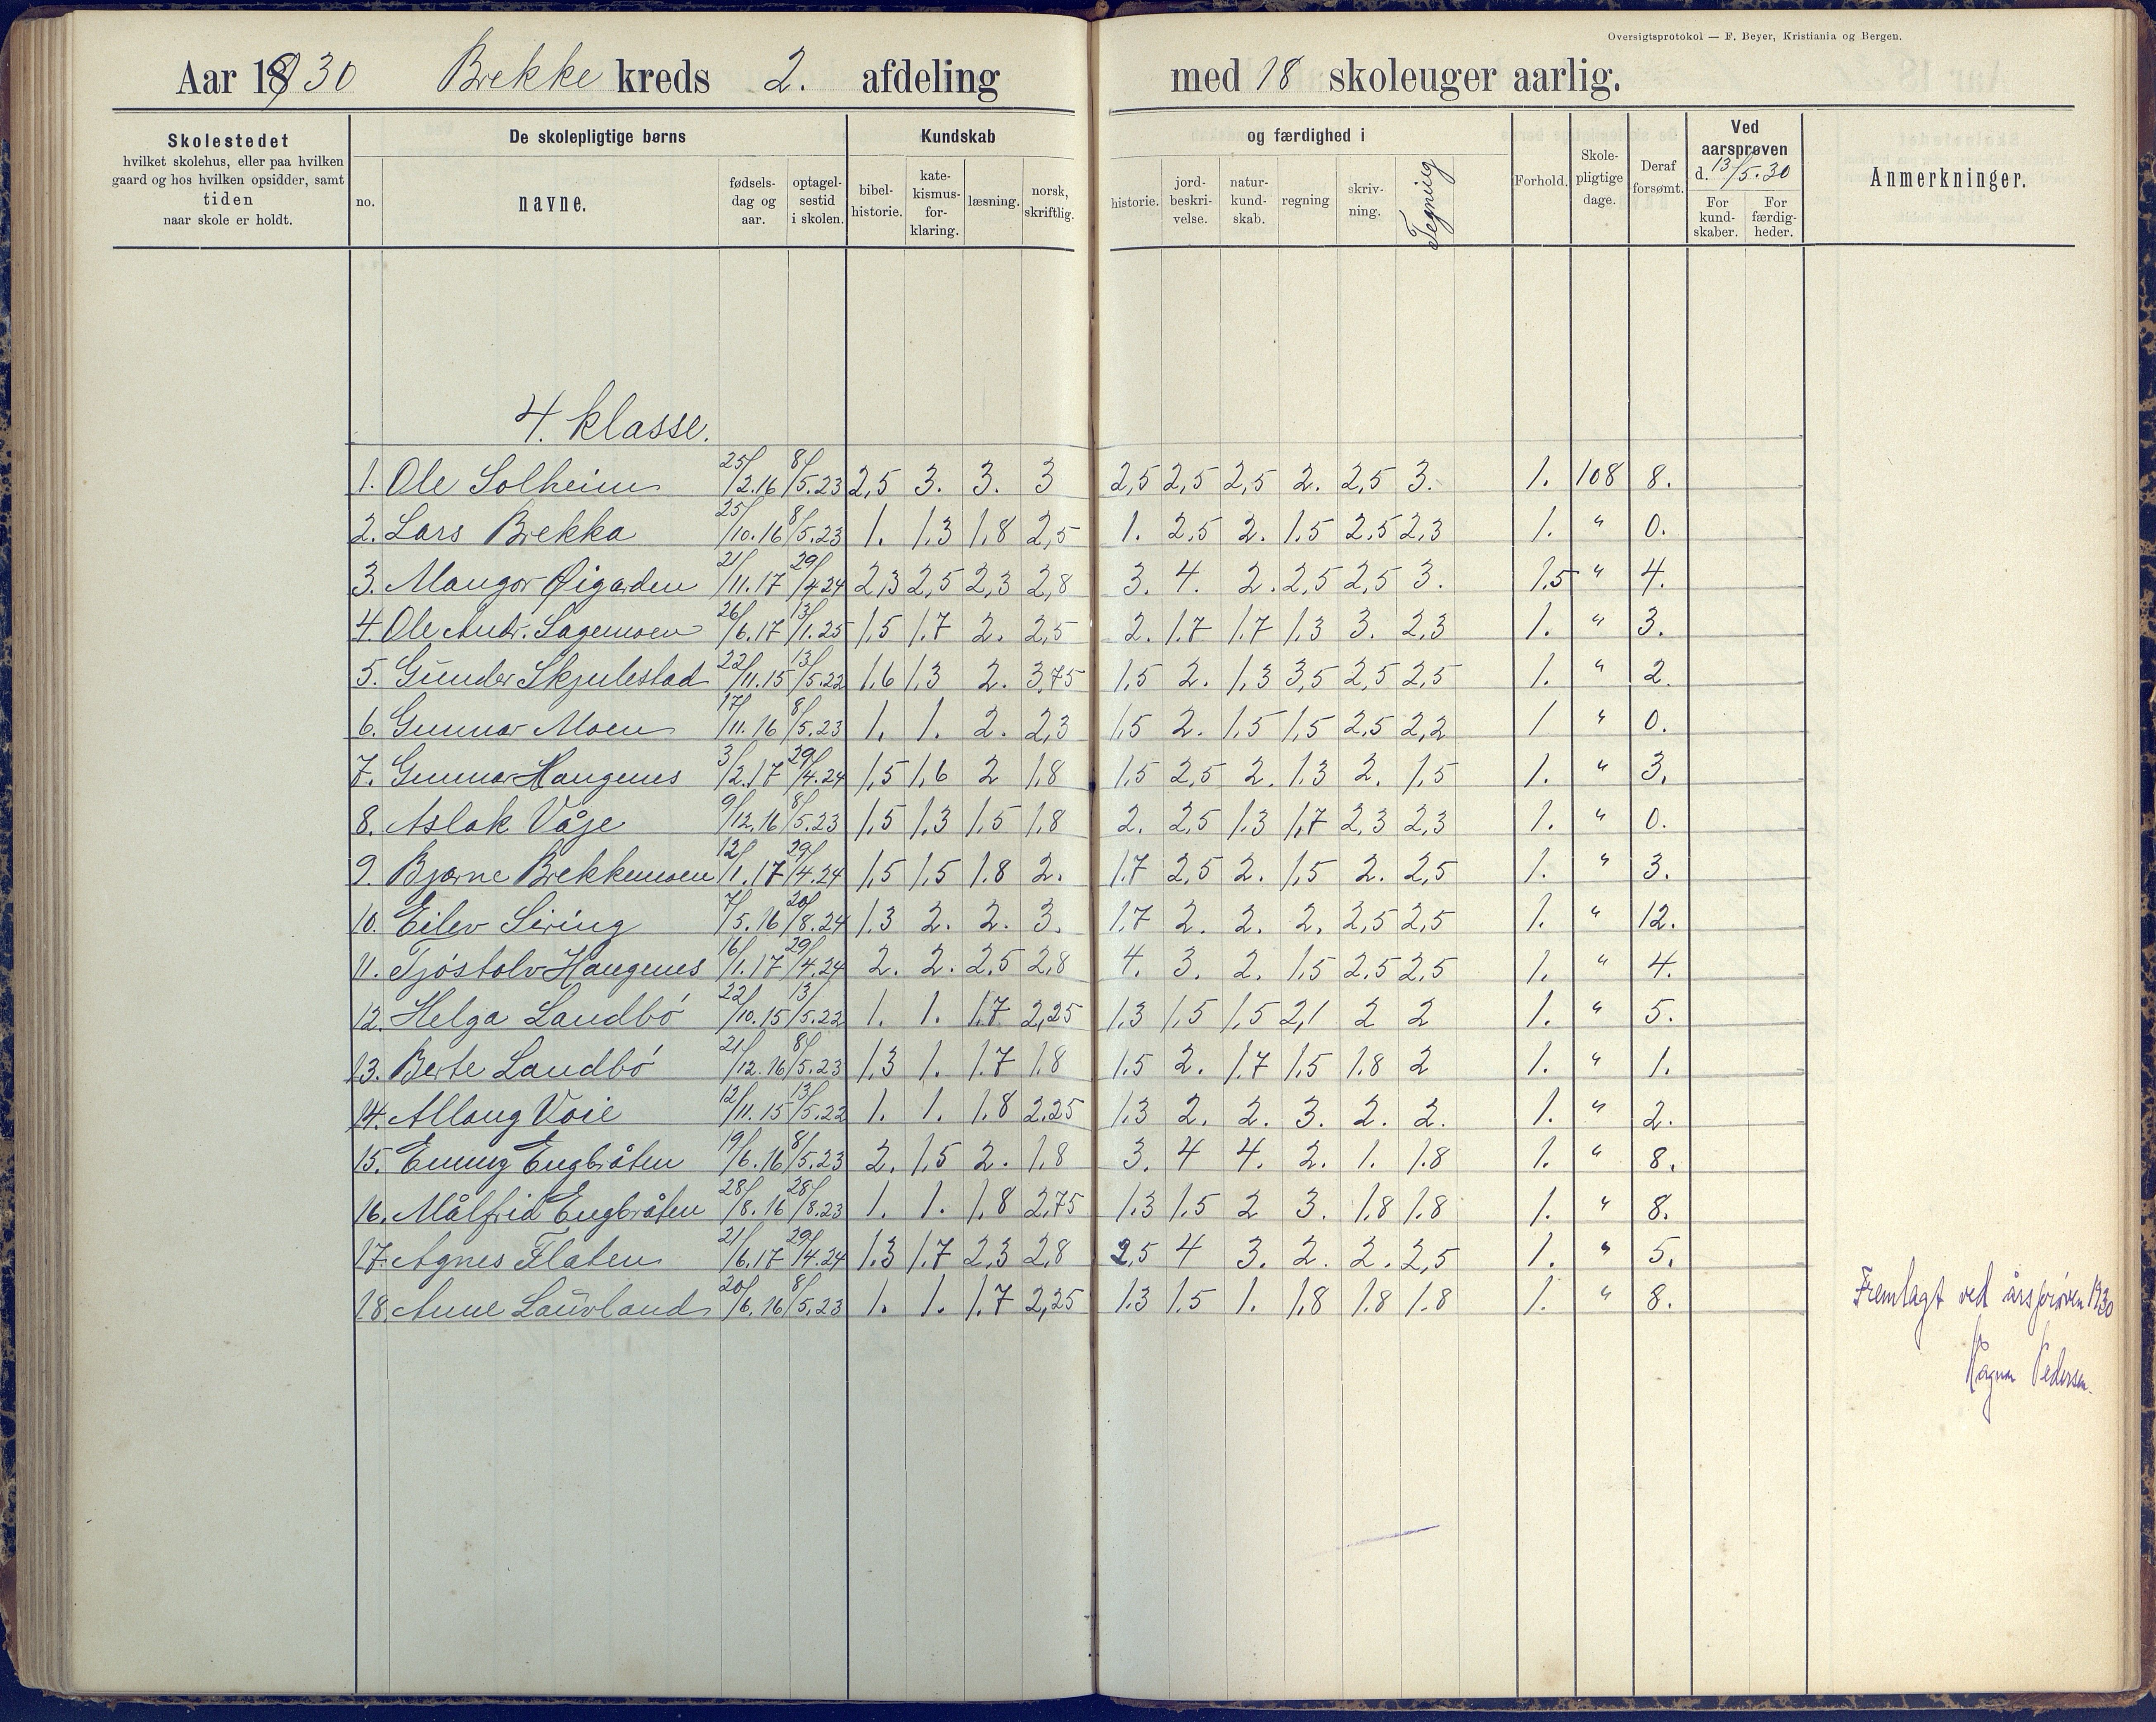 Oversigtsprotokol — F. Beyer, Kristiania og Bergen.
Aar 1930 Brekke kreds 2. afdeling med 18 skoleuger aarlig.
Skolestedet hvilket skolehus, eller paa hvilken gaard og hos hvilken opsidder, samt tiden naar skole er holdt.
De skolepligtige børns
no. navne. fødsels-dag og aar. optagel-sestid i skolen.
Kundskab og færdighed i
bibel-historie. kate-kismus-for-klaring. læsning. norsk, skriftlig. historie. jord-beskri-velse. natur-kund-skab. regning skriv-ning. Tegning
Forhold. Skole-pligtige dage. Deraf forsømt.
Ved aarsprøven d. 13/5.30
For kund-skaber. For færdig-heder.
Anmerkninger.
4. klasse.
1. Ole Solheim 25/2.16 8/5.23 2,5 3. 3. 3 2,5 2,5 2,5 2. 2,5 3. 1. 108 8.
2. Lars Brekka 25/10.16 8/5.23 1. 1,3 1,8 2,5 1. 2,5 2. 1,5 2,5 2,3 1. " 0.
3. Mangor Øigarden 21/11.17 29/4.24 2,3 2,5 2,3 2,8 3. 4. 2. 2,5 2,5 3. 1,5 " 4.
4. Ole Andr. Sagemoen 26/6.17 13/1.25 1,5 1,7 2. 2,5 2. 1,7 1,7 1,3 3. 2,3 1. " 3.
5. Gunder Skjulestad 22/11.15 13/5.22 1,6 1,3 2. 3,75 1,5 2. 1,3 3,5 2,5 2,5 1. " 2.
6. Gunnar Moen 17/11.16 8/5.23 1. 1. 2. 2,3 1,5 2. 1,5 1,5 2,5 2,2 1 " 0.
7. Gunnar Haugenes 3/2.17 29/4.24 1,5 1,6 2 1,8 1,5 2,5 2. 1,3 2. 1,5 1. " 3.
8. Aslak Våje 9/12.16 8/5.23 1,5 1,3 1,5 1,8 2. 2,5 1,3 1,7 2,3 2,3 1. " 0.
9. Bjarne Brekkemoen 12/1.17 29/4.24 1,5 1,5 1,8 2. 1,7 2,5 2. 1,5 2. 2,5 1. " 3.
10. Eilev Siring 7/5.16 20/8.24 1,3 2. 2. 3. 1,7 2. 2. 2. 2,5 2,5 1. " 12.
11. Tjöstolv Haugenes 16/1.17 29/4.24 2. 2. 2,5 2,8 4. 3. 2. 1,5 2,5 2,5 1. " 4.
12. Helga Landbö 22/10.15 13/5.22 1. 1. 1,7 2,25 1,3 1,5 1,5 2,1 2 2 1. " 5.
13. Berte Landbö 21/12.16 8/5.23 1,3 1. 1.7 1,8 1.5 2. 1.7 1,5 1.8 2 1. " 1.
14. Allaug Voie 12/11.15 13/5.22 1. 1. 1.8 2.25 1.3 2. 2. 3. 2. 2. 1. " 2.
15. Emmy Engbråten 19/6.16 8/5.23 2. 1,5 2. 1,8 3. 4 4. 2. 1. 1.8 1. " 8.
16. Målfrid Engbråten 28/8.16 28/8.23 1. 1. 1,8 2,75 1.3 1.5 2 3. 1.8 1.8 1. " 8.
17. Agnes Flaten 21/6.17 29/4.24 1.3 1.7 2,3 2,8 2,5 4 3. 2. 2. 2,5 1. " 5.
18. Anne Lauvland 20/6.16 8/5.23 1. 1. 1.7 2,25 1.3 1.5 1. 1,8 1.8 1.8 1. " 8.
Fremlagt ved årsprøven 1930
Ragnar Pedersen.